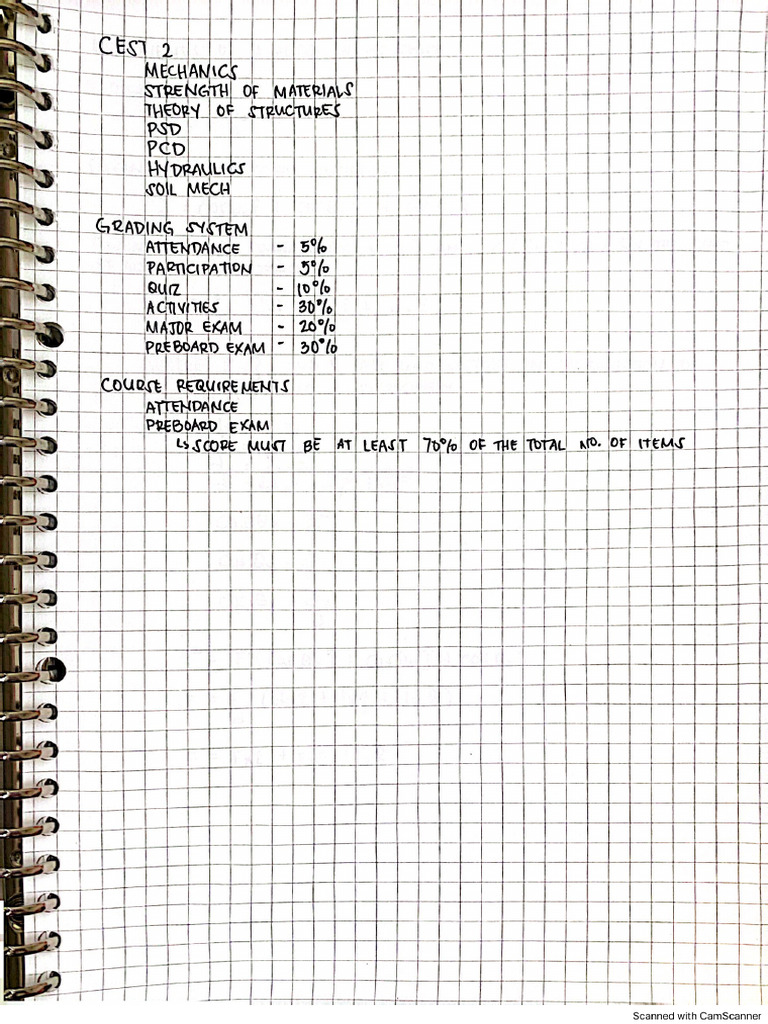 CEST 2
MECHANICS
STRENGTH OF MATERIALS
THEORY OF STRUCTURES
PSD
PCD
HYDRAULICS
SOIL MECH
GRADING SYSTEM
ATTENDANCE - 5%
PARTICIPATION - 5%
QUIZ - 10%
ACTIVITIES - 30%
MAJOR EXAM - 20%
PREBOARD EXAM - 30%
COURSE REQUIREMENTS
ATTENDANCE
PREBOARD EXAM
↳ SCORE MUST BE AT LEAST 70% OF THE TOTAL NO. OF ITEMS
Scanned with CamScanner